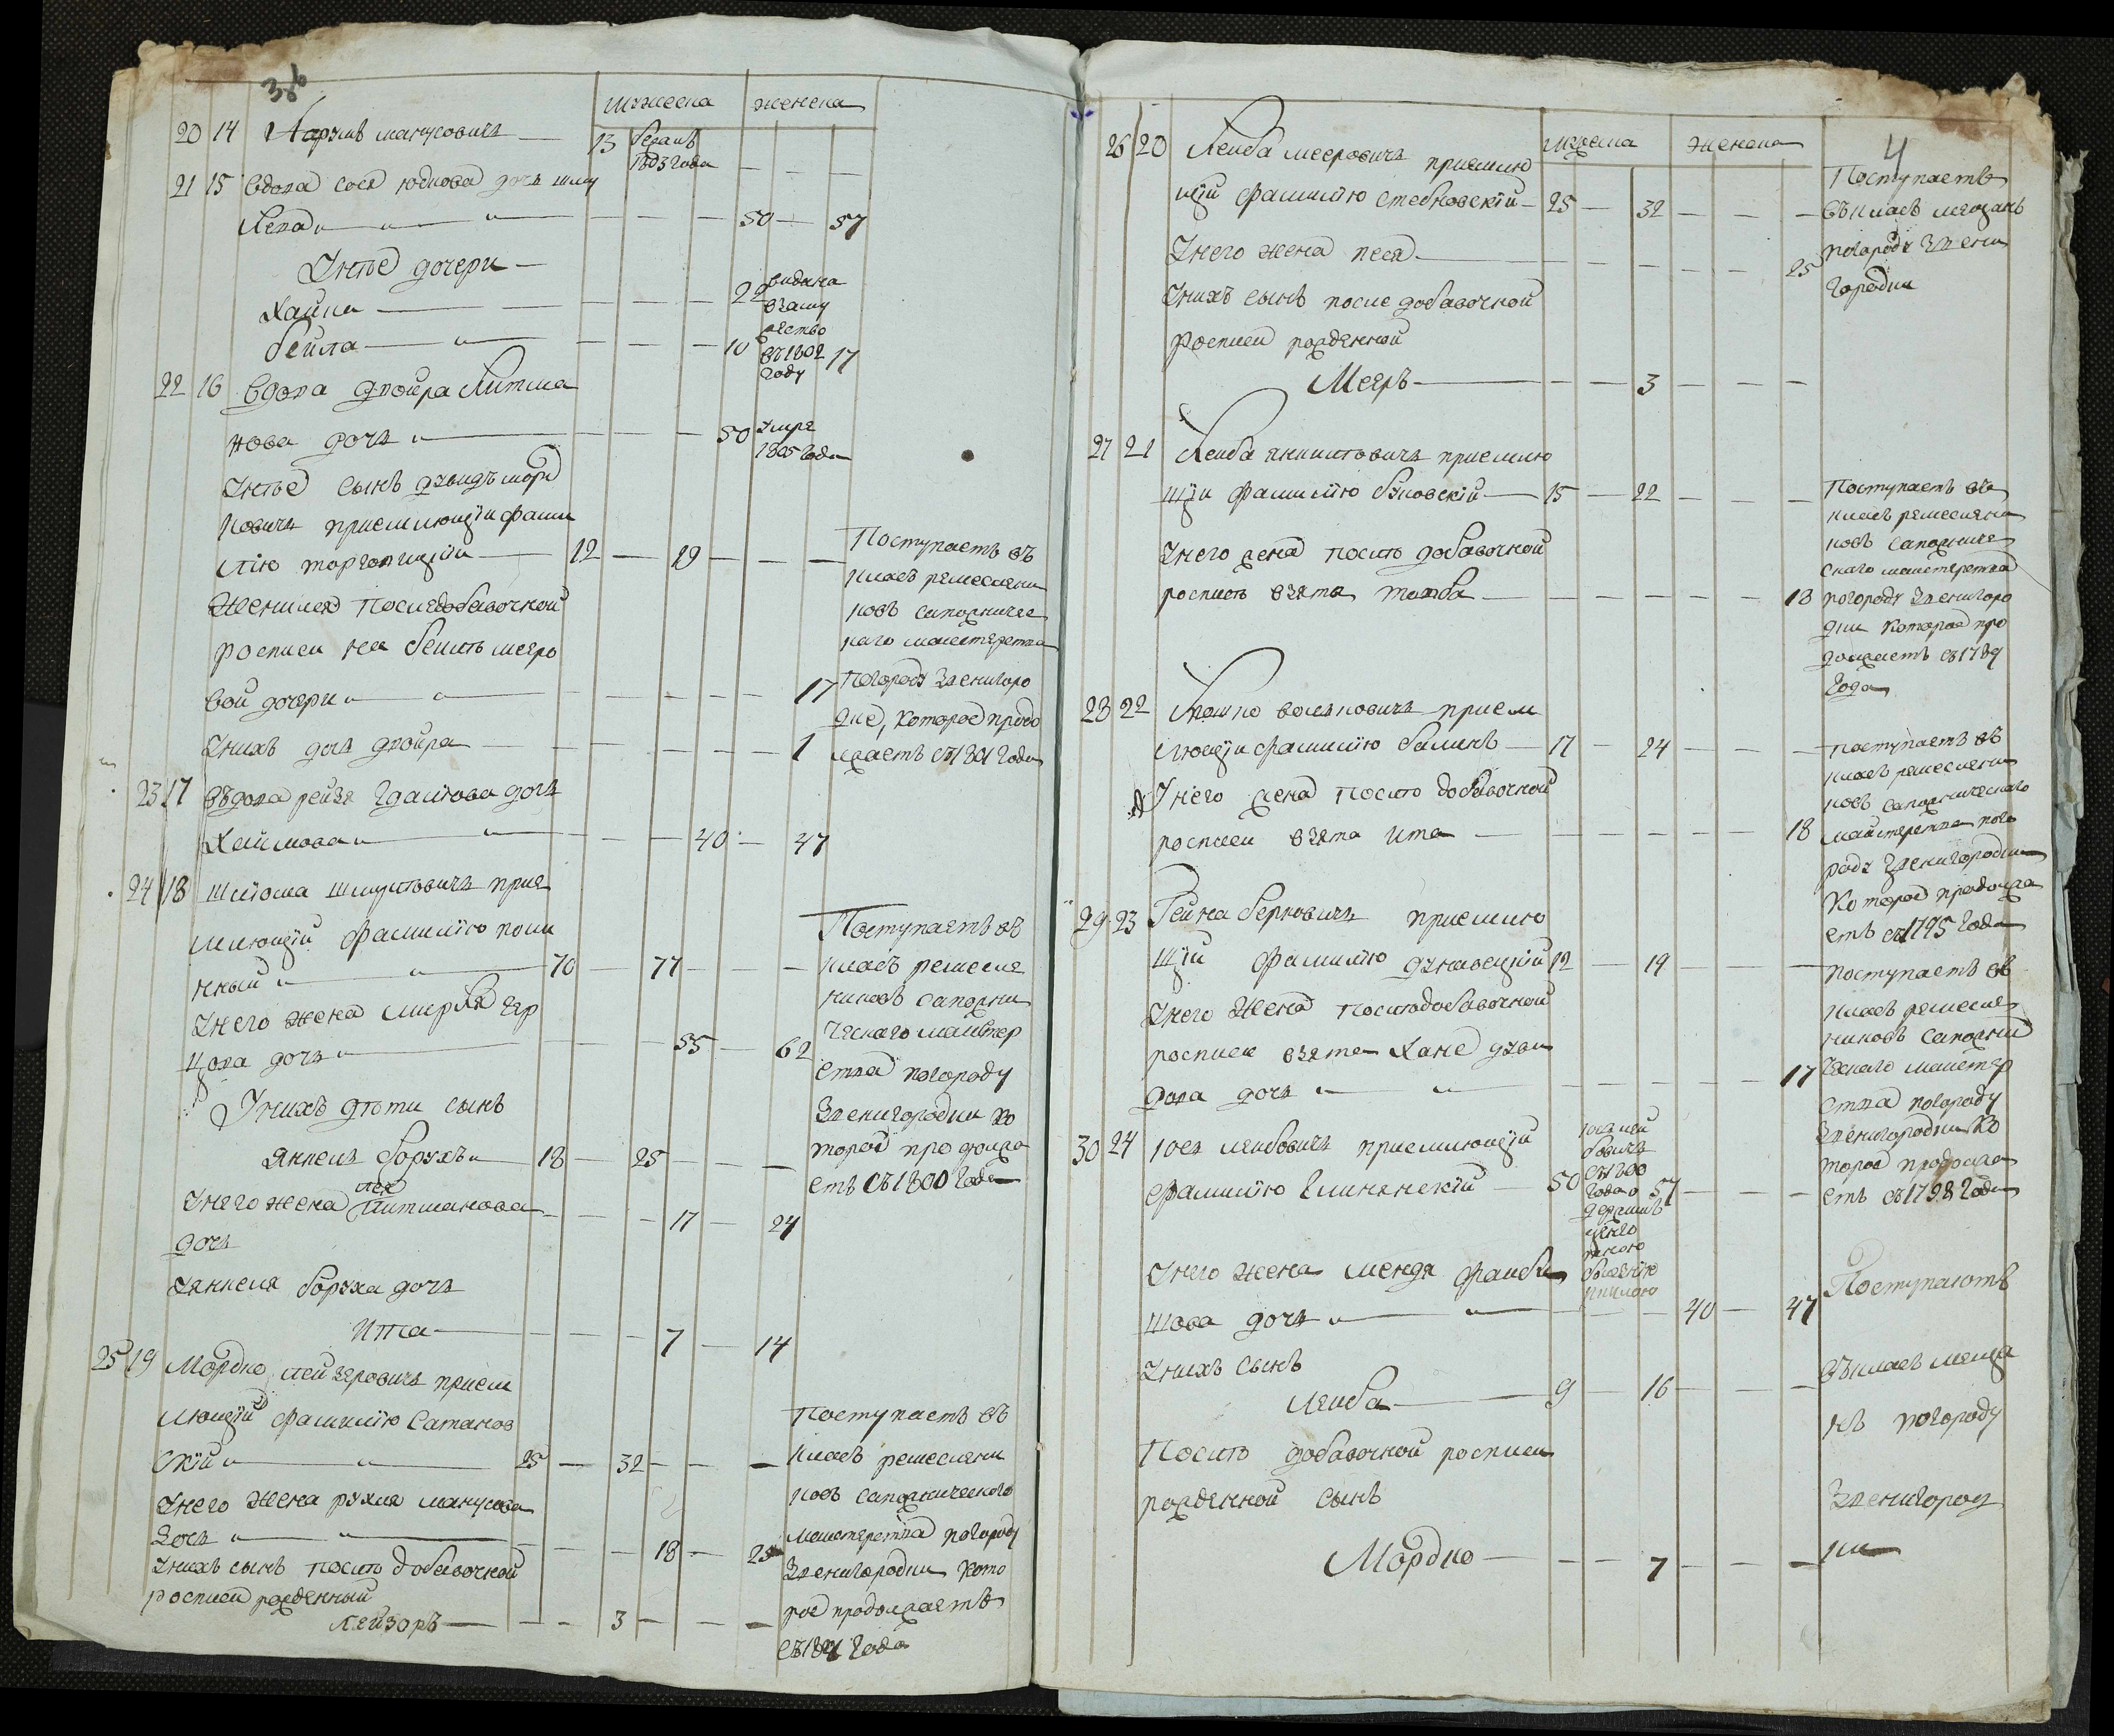 мужеска женска
20 14 Нахумъ мануковичъ — 13 бежалъ
1803 года — — —
21 15 вдова сося юдкова дочь шму
лева — — — — 50 — 57
Унее дочери —
Хайка — — — — 22 видана
взаму
жество
въ 1802
году
бейла — — — — 10 17
22 16 вдова двойра Литма
нова дочь — — — — 50 умре
1805 года
Унее сынъ давидъ морд
ковичъ приемлющiи фами
лiю торговицкiи — 12 — 19 — — — Поступаетъ въ
класъ ремеслени
ковъ сапожничес
каго маистерства
погороду Звенигоро
дке, которое продо
лжаетъ съ 1801 года
Женился последобавочной
росписи на бейле меэро
вой дочери — — — — — 17
Унихъ дочь двойра — — — — — 1
23 17 въдова рейзя Гдалiова дочь
Хаимова — — — — 40 — 47
24 18 шлiома шмулiовичъ прие
млющiй фамилiю поли
нный — 70 — 77 — — Поступаетъ въ
класъ ремесле
никовъ сапожни
ческаго маистер
ства погороду
Звенигородки ко
торое продолжа
етъ съ 1800 года
Унего жена мирля гер
цова дочь — — — 55 — 62
Унихъ дети сынъ
янкель борухъ — 18 — 25 — — —
лея
Унего жена Литманова — — — 17 — 24
дочь
Уянкеля боруха дочь
Ита — — — — 7 — 14
25 19 Мордко лейзеровичъ прием
лющiй фамилiю Сатанов
скiй — 25 — 32 — — — Поступаетъ въ
класъ ремеслени
ковъ сапожническаго
маистерства погороду
Звенигородки кото
рое продолжаетъ
съ 1801 года
Унего жена рухля манусова
дочь — — — — 18 — 25
Унихъ сынъ после добавочной
росписи рожденный
Лейзоръ — — — 3 — — —
4
мужеска женска
26 20 Лейба мееровичъ приемлю
щiй фамилiю стебновскiй — 25 — 32 — — — Поступаетъ
въкласъ мещанъ
погороду Звени
городки
Унего жена песя — — — — — 25
Унихъ сынъ после добавочной
росписи рожденной
Меэръ — — — 3 — — —
27 21 Лейба янкилiовичъ приемлю
щiи фамилiю буковскiй — 15 — 22 — — — Поступаетъ въ
класъ ремеслени
ковъ сапожниче
скаго маистерства
погороду Звенигоро
дки которое про
должаетъ съ 1789
года
Унего жена после добавочной
росписи взята товба — — — — — 18
28 22 Иошко вольковичъ прием
лющiи фамилiю балинъ — 17 — 24 — — — поступаетъ въ
класъ ремеслени
ковъ сапожническаго
маистерства пого
роду Звенигородки
которое продолжа
етъ съ 1795 года
Унего жена после добавочной
росписи взята ита — — — — — 18
29 23 Гейна берковичъ приемлю
щiй фамилiю дунаецкiй 12 — 19 — — — поступаетъ въ
класъ ремесле
никовъ сапожни
ческаго маистер
ства погороду
Звенигородки ко
торое продолжа
етъ съ 1798 года
Унего жена последобавочной
росписи взята Хане дави
дова дочь — — — — — 17
30 24 юсъ лейбовичъ приемлющiи
фамилiю Глинянскiй — 50 57 — — —
Унего жена менда файби
шова дочь — — — 40 — 47 Поступаютъ
въкласъ меща
нъ погороду
Звенигород
ки
Унихъ сынъ
лейба — 9 — 16 — — —
После добавочной росписи
рожденной сынъ
Мордко — — — 7 — — —